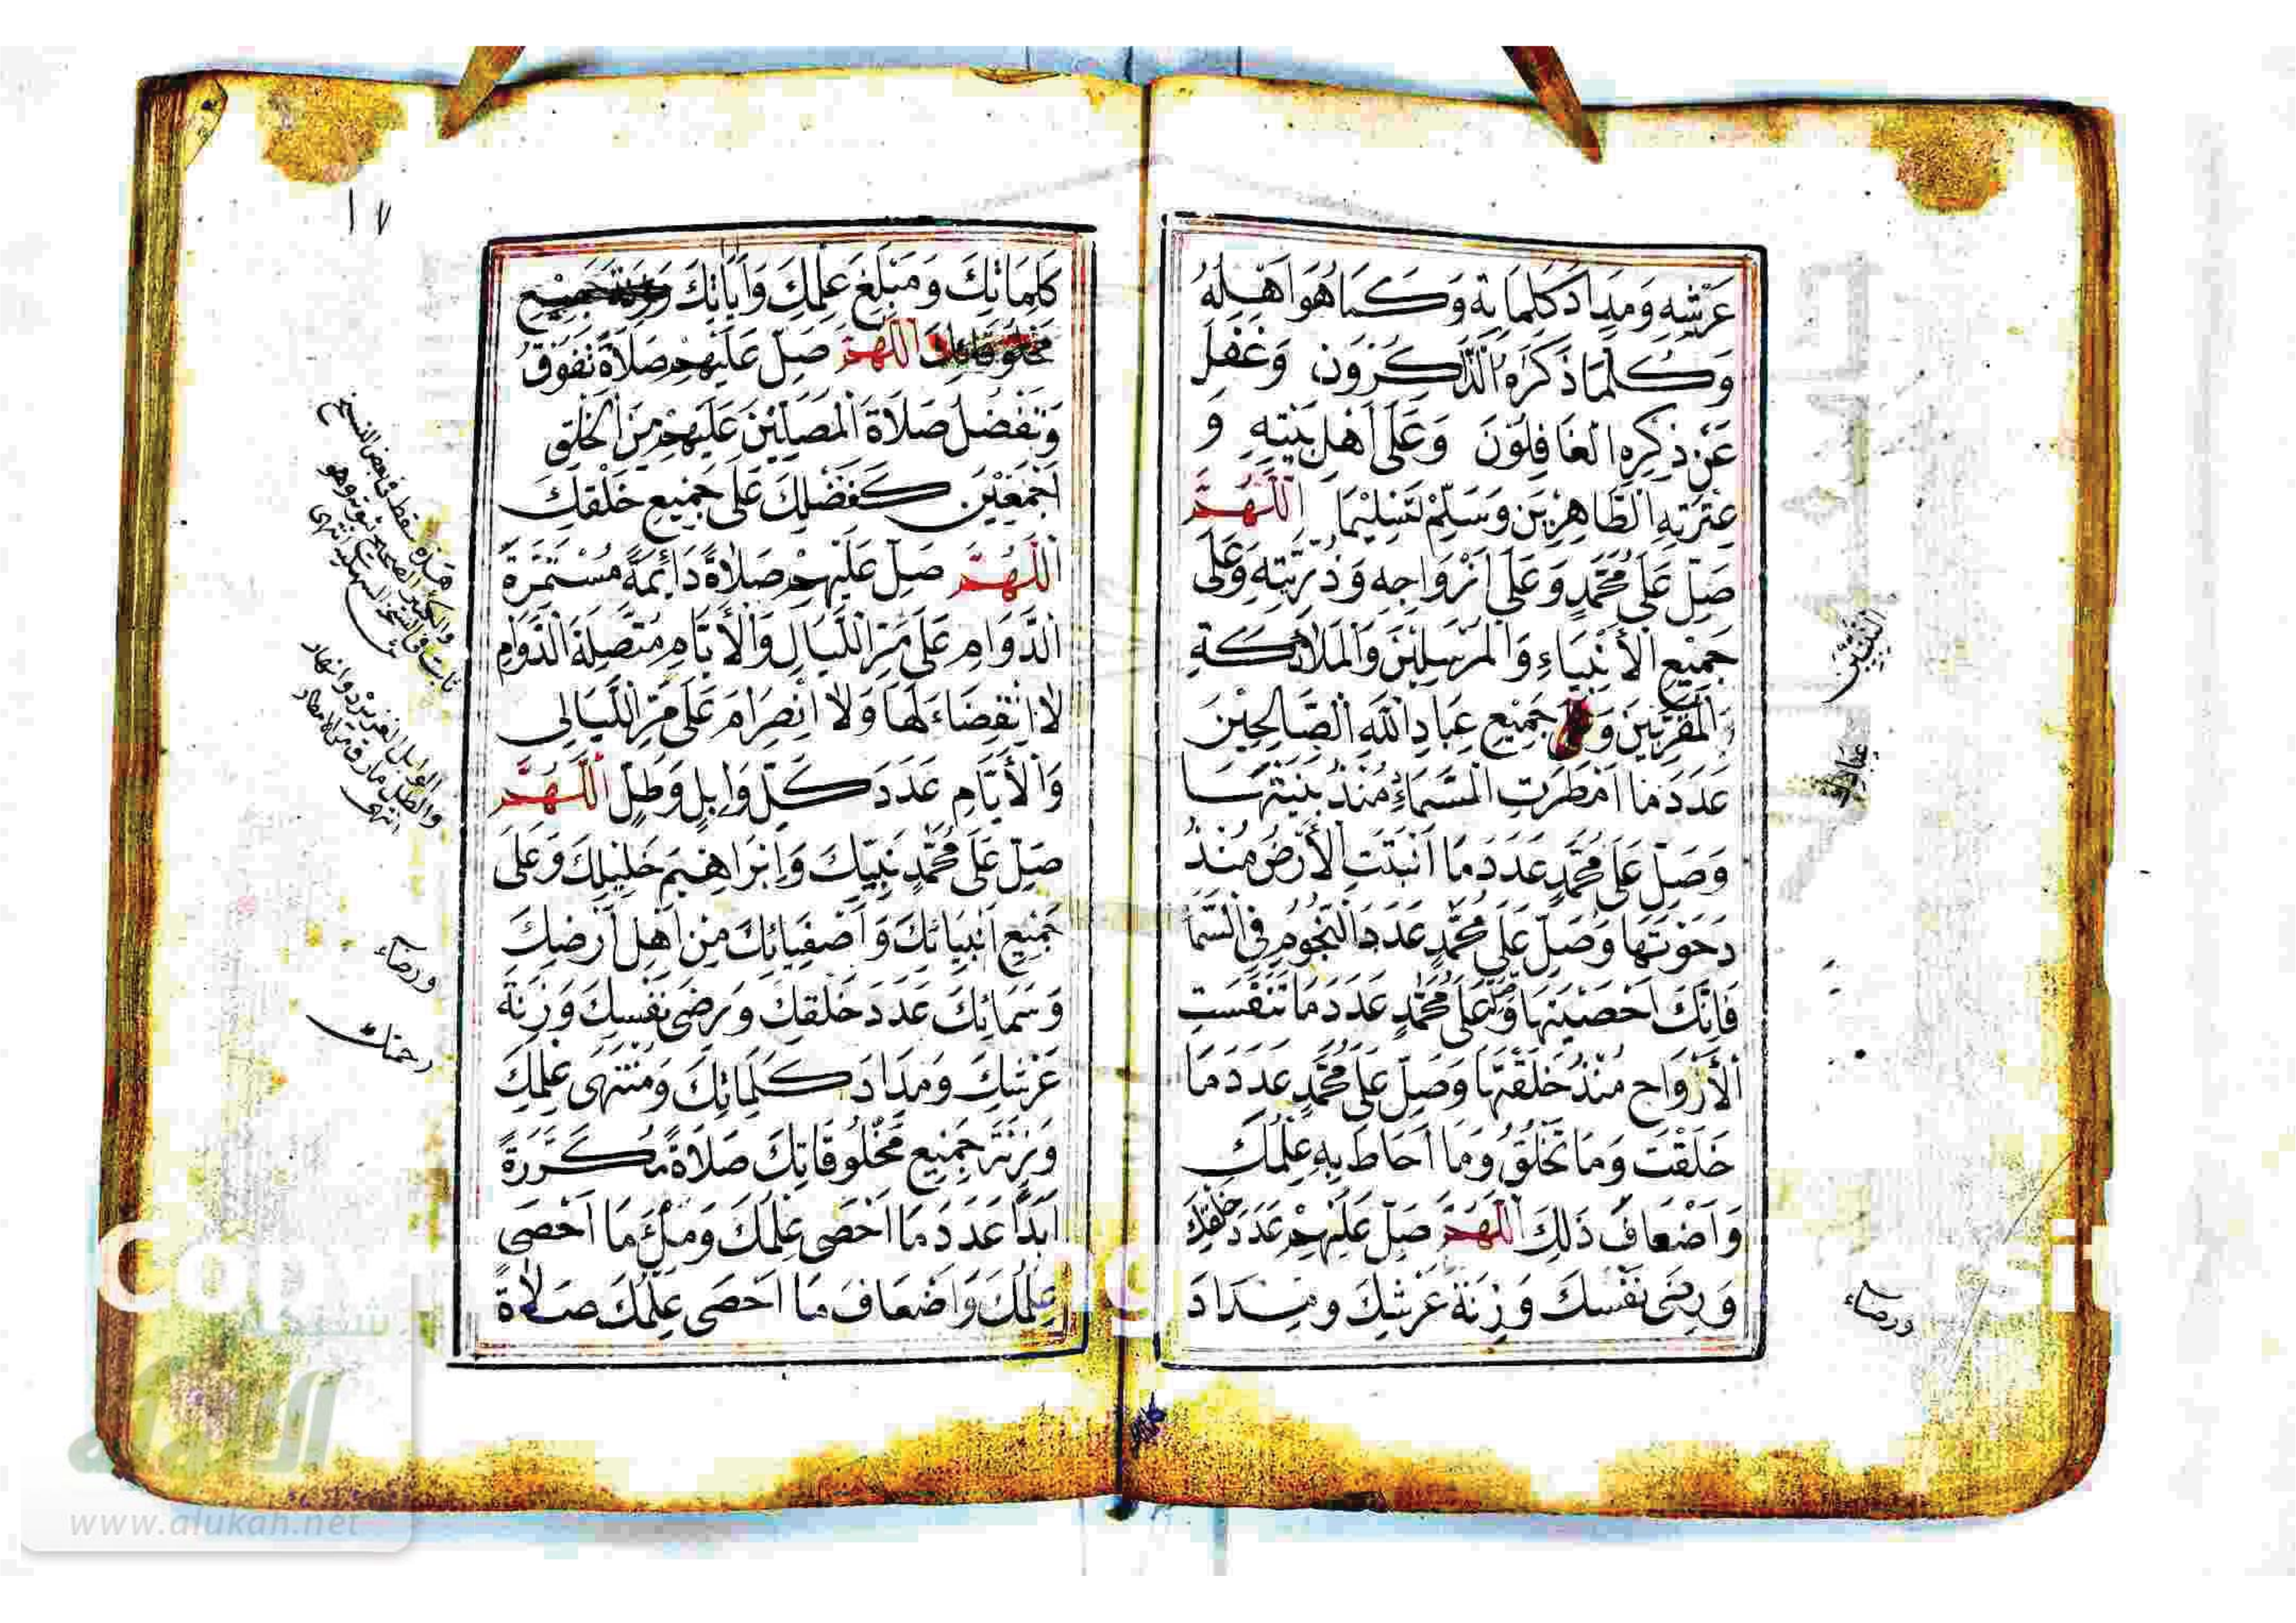 عَرْشِهِ وَمِدَادَ كَلِمَاتِهِ وَكَمَا هُوَ اَهْلُهُ
وَكُلَّمَا ذَكَرَهُ الذَّاكِرُونَ وَغَفَلَ
عَنْ ذِكْرِهِ الْغَافِلُوْنَ وَعَلَى اَهْلِ بَيْتِهِ وَ
عِتْرَتِهِ الطَّاهِرِيْنَ وَسَلِّمْ تَسْلِيْمًا اَللّٰهُمَّ
صَلِّ عَلَى مُحَمَّدٍ وَعَلَى اَزْوَاجِهِ وَذُرِّيَّتِهِ وَعَلَى
جَمِيْعِ الْأَنْبِيَاءِ وَالْمُرْسَلِيْنَ وَالْمَلَائِكَةِ
النَّبِيِّيْنَ
وَالْمُقَرَّبِيْنَ وَ جَمِيْعِ عِبَادِ اللّٰهِ الصَّالِحِيْنَ
عَدَدَ مَا اَمْطَرَتِ السَّمَاءُ مُنْذُ بَنَيْتَهَا
وَصَلِّ عَلَى مُحَمَّدٍ عَدَدَ مَا اَنْبَتَتِ الْأَرْضُ مُنْذُ
دَحَوْتَهَا وَصَلِّ عَلَى مُحَمَّدٍ عَدَدَ النُّجُوْمِ فِي السَّمَا
فَاِنَّكَ اَحْصَيْتَهَا وَصَلِّ عَلَى مُحَمَّدٍ عَدَدَ مَا تَنَفَّسَتِ
الْأَرْوَاحُ مُنْذُ خَلَقْتَهَا وَصَلِّ عَلَى مُحَمَّدٍ عَدَدَ مَا
خَلَقْتَ وَمَا تَخْلُقُ وَمَا اَحَاطَ بِهِ عِلْمُكَ
وَاَضْعَافَ ذَلِكَ اَللّٰهُمَّ صَلِّ عَلَيْهِمْ عَدَدَ خَلْقِكَ
وَرِضَى نَفْسِكَ وَزِنَةَ عَرْشِكَ وَمِدَادَ
ورضاء
١٧
كَلِمَاتِكَ وَمَبْلَغَ عِلْمِكَ وَاٰيَاتِكَ وَزِنَةَ جَمِيْعِ
مَخْلُوْقَاتِكَ اَللّٰهُمَّ صَلِّ عَلَيْهِمْ صَلَاةً تَفُوْقُ
وَتَفْضُلُ صَلَاةَ الْمُصَلِّيْنَ عَلَيْهِمْ مِنَ الْخَلْقِ
اَجْمَعِيْنَ كَفَضْلِكَ عَلَى جَمِيْعِ خَلْقِكَ
اَللّٰهُمَّ صَلِّ عَلَيْهِمْ صَلَاةً دَائِمَةً مُسْتَمِرَّةَ
الدَّوَامِ عَلَى مَرِّ اللَّيَالِ وَالْأَيَّامِ مُتَّصِلَةَ الدَّوَامِ
لَا انْقِضَاءَ لَهَا وَلَا انْصِرَامَ عَلَى مَرِّ اللَّيَالِي
وَالْأَيَّامِ عَدَدَ كُلِّ وَابِلٍ وَطَلٍّ اَللّٰهُمَّ
صَلِّ عَلَى مُحَمَّدٍ نَبِيِّكَ وَاِبْرَاهِيْمَ خَلِيْلِكَ وَعَلَى
جَمِيْعِ اَنْبِيَائِكَ وَاَصْفِيَائِكَ مِنْ اَهْلِ اَرْضِكَ
وَسَمَائِكَ عَدَدَ خَلْقِكَ وَرِضَى نَفْسِكَ وَزِنَةَ
عَرْشِكَ وَمِدَادَ كَلِمَاتِكَ وَمُنْتَهَى عِلْمِكَ
وَزِنَةَ جَمِيْعِ مَخْلُوْقَاتِكَ صَلَاةً مُكَرَّرَةً
اَبَدًا عَدَدَ مَا اَحْصَى عِلْمُكَ وَمِلْءَ مَا اَحْصَى
عِلْمُكَ وَاَضْعَافَ مَا اَحْصَى عِلْمُكَ صَلَاةً
هذه سقط في بعض النسخ
الوابل الغزير
والطل مارق من الامطار
انتهى
ورضاء
رحمتك
الألوكة
www.alukah.net